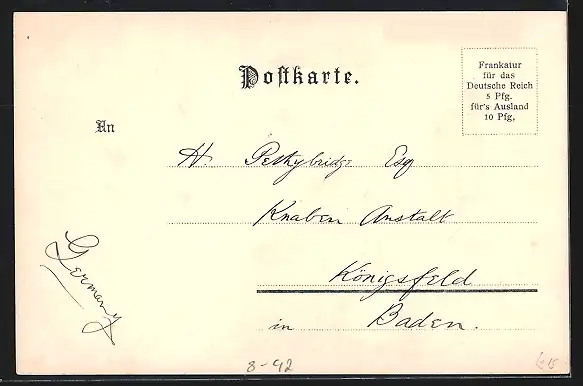 Postkarte.
Frankatur
für das
Deutsche Reich
5 Pfg.
für's Ausland
10 Pfg,
An
H. Pethybridge Esq
Knaben Anstalt
Königsfeld
in Baden.
Germany
8-92